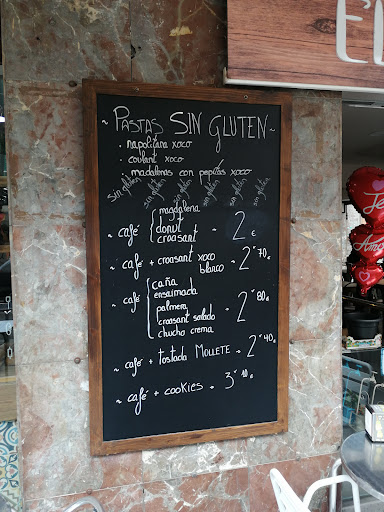 ~ PASTAS SIN GLUTEN ~
· napolitana xoco
· coulant xoco
· madalenas con pepitas xoco
sin gluten sin gluten sin gluten sin gluten sin gluten sin gluten
~ café { magdalena
donut
croasant = 2 €
~ café + croasant xoco
blanco = 2'70€
~ café { caña
ensaimada
palmera
croasant salado
chucho crema = 2'80€
~ café + tostada MOLLETE = 2'40€
~ café + cookies = 3'10€